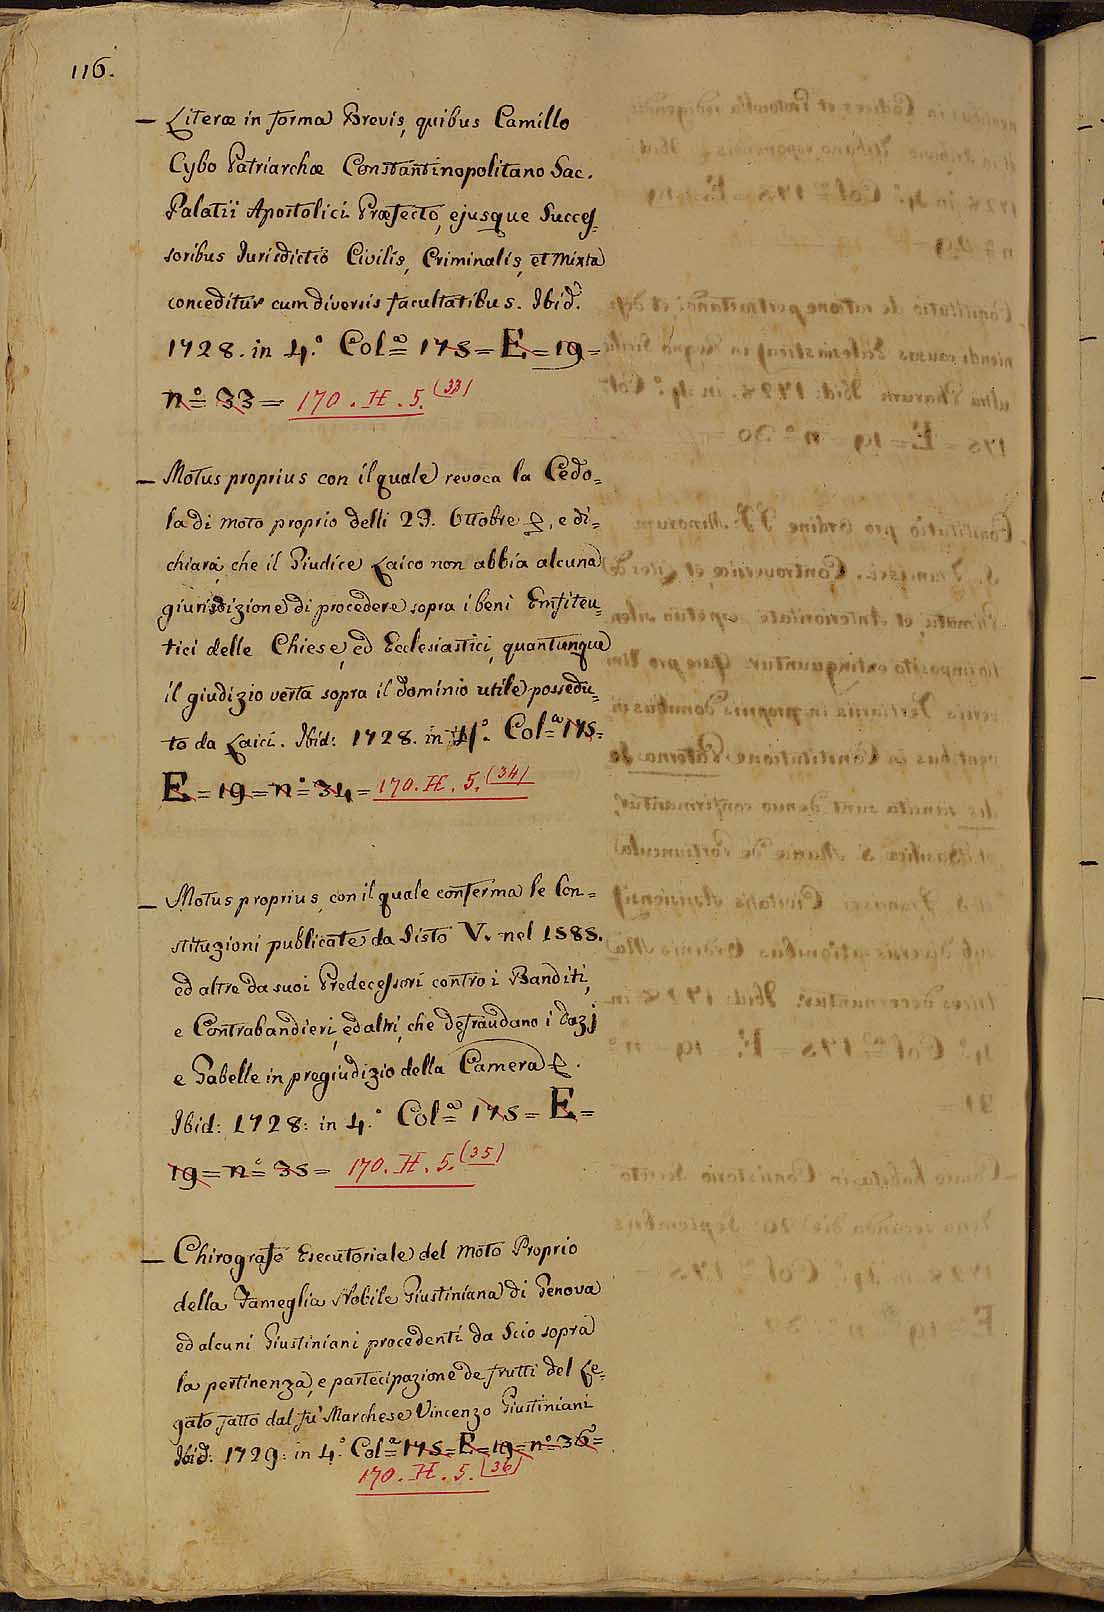 116.
– Literæ in forma Brevis, quibus Camillo
Cybo Patriarchæ Constantinopolitano Sac.
Palatii Apostolici Præfecto, ejusque Succes-
soribus Jurisdictio Civilis, Criminalis, et Mixta
conceditur cum diversis facultatibus. Ibid.
1728. in 4.° Col.ª 175 = E = 19 =
n.° 33 = 170. H. 5. (33)
– Motus proprius con il quale revoca la Cedo=
la di moto proprio delli 23. Ottobre &, e di=
chiara, che il Giudice Laico non abbia alcuna
giurisdizione di procedere sopra i beni Emfiteu=
tici delle Chiese, ed Ecclesiastici, quantunque
il giudizio verta sopra il dominio utile possedu=
to da Laici. Ibid: 1728. in 4.° Col.ª 175 =
E = 19 = n.° 34 = 170. H. 5. (34)
– Motus proprius, con il quale conferma le Con=
stituzioni publicate da Sisto V. nel 1585.
ed altre da suoi Predecessori contro i Banditi,
e Contrabandieri, ed altri, che defraudano i dazj
e Gabelle in pregiudizio della Camera &.
Ibid: 1728: in 4.° Col.ª 175 = E =
19 = n.° 35 = 170. H. 5. (35)
– Chirografo Esecutoriale del Moto Proprio
della Fameglia Nobile Giustiniana di Genova
ed alcuni Giustiniani procedenti da Scio sopra
la pertinenza, e partecipazione de frutti del Le=
gato fatto dal fu' Marchese Vincenzo Giustiniani
Ibid: 1729: in 4.° Col.ª 175 = E = 19 = n.° 36 =
170. H. 5. (36)